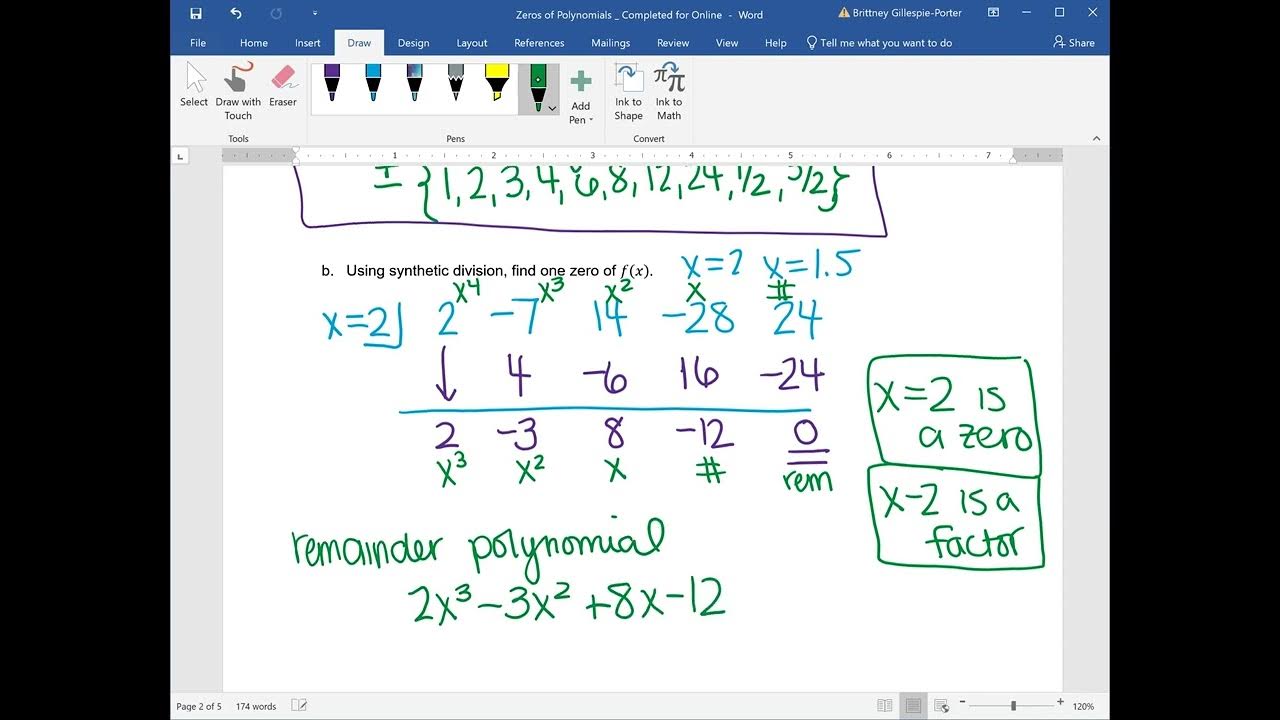 Zeros of Polynomials _ Completed for Online - Word
Brittney Gillespie-Porter
File Home Insert Draw Design Layout References Mailings Review View Help Tell me what you want to do Share
Select Draw with Touch Eraser Add Pen Ink to Shape Ink to Math
Tools Pens Convert
1 2 3 4 5 6 7
± {1, 2, 3, 4, 6, 8, 12, 24, 1/2, 3/2}
b. Using synthetic division, find one zero of f(x). x=2 x=1.5
x⁴ x³ x² x #
x=2 2 -7 14 -28 24
4 -6 16 -24
2 -3 8 -12 0
x³ x² x # rem
x=2 is
a zero
x-2 is a
factor
remainder polynomial
2x³ -3x² +8x -12
Page 2 of 5 174 words 120%